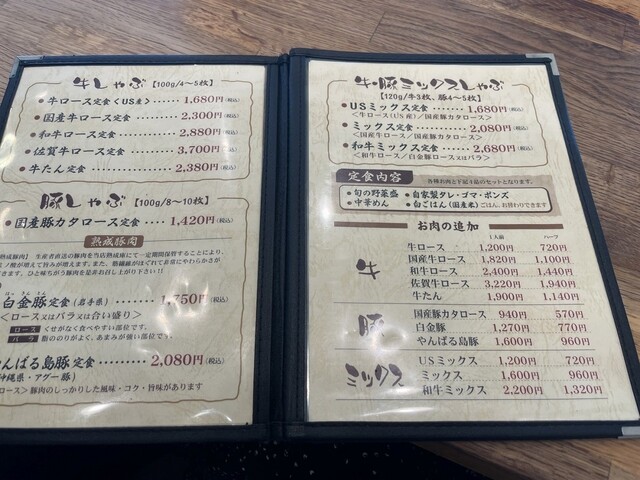 牛しゃぶ【100g/4〜5枚】
牛ロース定食<US産>……1,680円(税込)
国産牛ロース定食………2,300円(税込)
和牛ロース定食…………2,880円(税込)
佐賀牛ロース定食………3,700円(税込)
牛たん定食………………2,380円(税込)
豚しゃぶ【100g/8〜10枚】
国産豚カタロース定食……1,420円(税込)
熟成豚肉
熟成豚肉】生産者直送の豚肉を当店熟成庫にて一定期間保管することにより、
ミノ酸が増えて旨みが増えます。また、筋繊維がほぐれて非常にやわらかさが
できます。ひと味ちがう豚肉を是非お召し上がり下さい!!
白金豚定食(岩手県)………1,750円(税込)
<ロース又はバラ又は合い盛り>
ロース くせがなく食べやすい部位です。
バラ 脂ののりがよく、あまみが強い部位です。
んばる島豚定食…………2,080円(税込)
沖縄県・アグー豚)
ロース>豚肉のしっかりした風味・コク・旨味があります
牛・豚ミックスしゃぶ
【120g/牛3枚、豚4〜5枚】
USミックス定食…………1,680円(税込)
<牛ロース(US産)/国産豚カタロース>
ミックス定食………………2,080円(税込)
<国産牛ロース/国産豚カタロース>
和牛ミックス定食…………2,680円(税込)
<和牛ロース/白金豚ロース又はバラ>
定食内容 各種お肉と下記4品のセットとなります。
●旬の野菜盛 ●自家製タレ・ゴマ・ポンズ
●中華めん ●白ごはん(国産米)ごはん、お替わりできます
お肉の追加
1人前 ハーフ
牛
牛ロース 1,200円 720円
国産牛ロース 1,820円 1,100円
和牛ロース 2,400円 1,440円
佐賀牛ロース 3,220円 1,940円
牛たん 1,900円 1,140円
豚
国産豚カタロース 940円 570円
白金豚 1,270円 770円
やんばる島豚 1,600円 960円
ミックス
USミックス 1,200円 720円
ミックス 1,600円 960円
和牛ミックス 2,200円 1,320円